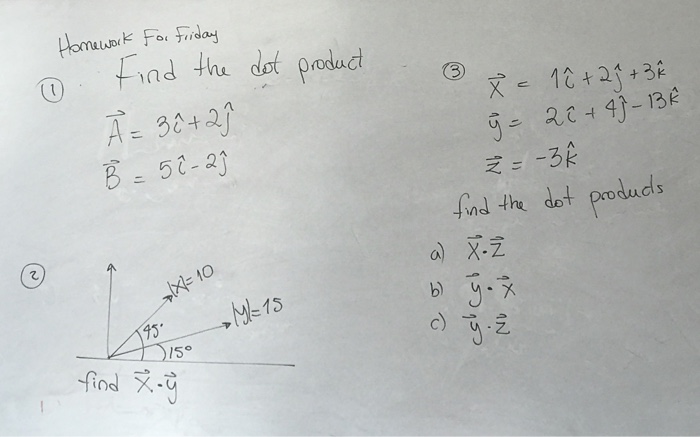 Homework For Friday
① Find the dot product
A⃗ = 3î + 2ĵ
B⃗ = 5î - 2ĵ
②
|x|=10
|y|=15
45°
15°
find x⃗·y⃗
③ x⃗ = 1î + 2ĵ + 3k̂
y⃗ = 2î + 4ĵ - 13k̂
z⃗ = -3k̂
find the dot products
a) x⃗·z⃗
b) y⃗·x⃗
c) y⃗·z⃗